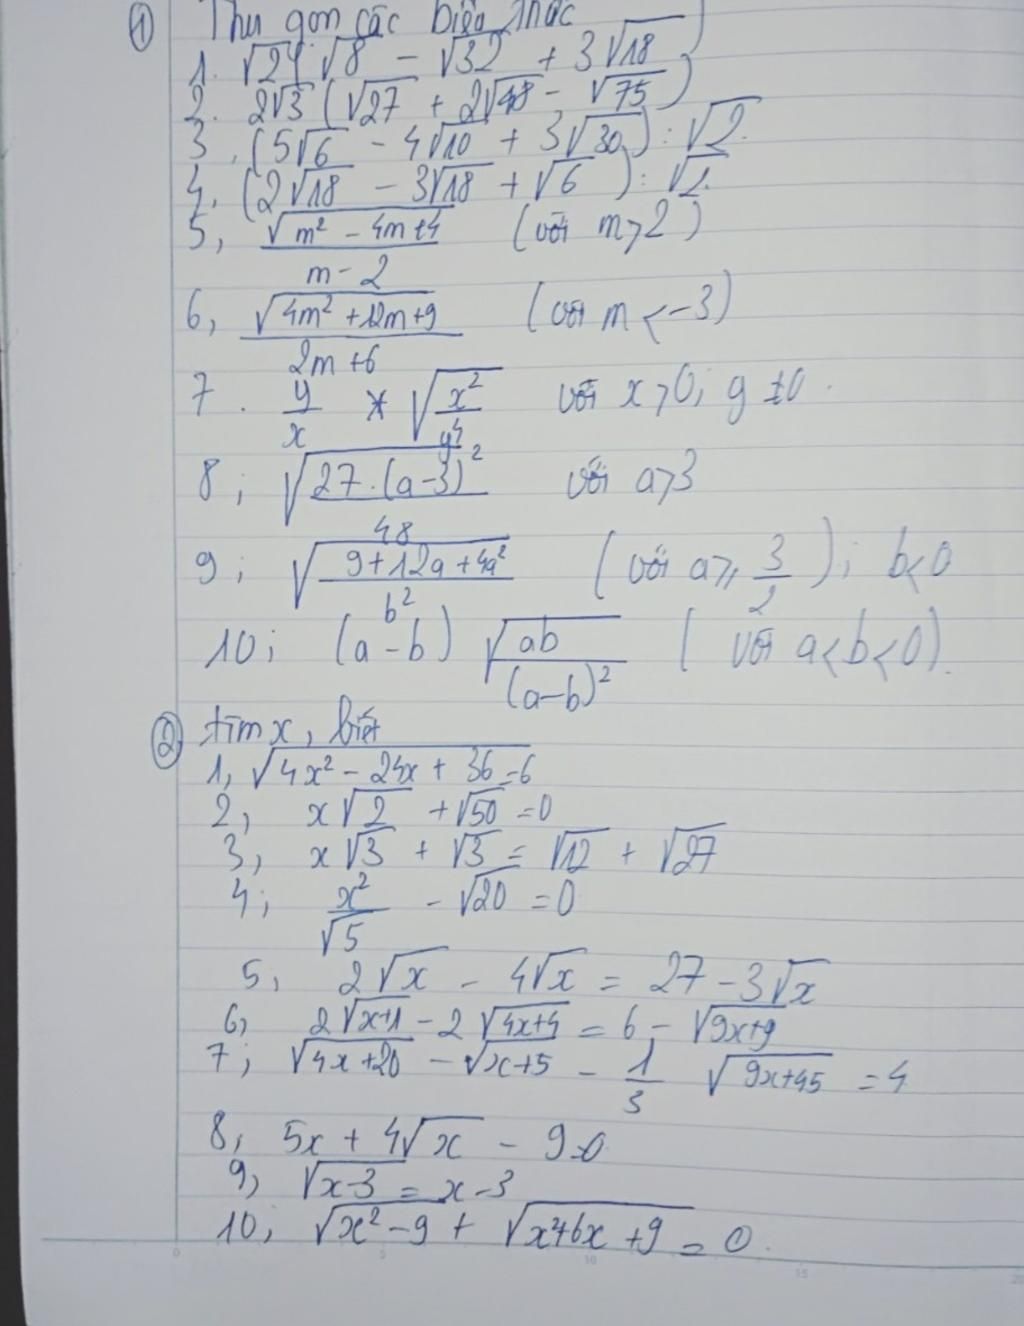 ① Thu gọn các biểu thức
1. √24 √8 - √32 + 3√18
2. 2√3 (√27 + 2√48 - √75)
3. (5√6 - 4√10 + 3√30) : √2.
4. (2√18 - 3√18 + √6) : √2.
5, √(m² - 4m + 4) / (m - 2) (với m > 2)
6, √(4m² + 12m + 9) / (2m + 6) (với m < -3)
7. y/x * √(x²/y⁴) với x > 0; y ≠ 0.
8; √(27.(a-3)²/48) với a > 3
9; √((9 + 12a + 4a²)/b²) (với a ≥ 3/2); b < 0
10; (a - b) √(ab/(a-b)²) (với a < b < 0).
② tìm x, biết
1, √(4x² - 24x + 36) = 6
2, x√2 + √50 = 0
3, x√3 + √3 = √12 + √27
4; x²/√5 - √20 = 0
5; 2√x - 4√x = 27 - 3√x
6, 2√(x+1) - 2√(4x+4) = 6 - √(9x+9)
7; √(4x+20) - √(x+5) - 1/3 √(9x+45) = 4
8, 5x + 4√x - 9 = 0
9, √(x-3) = x - 3
10, √(x² - 9) + √(x² + 6x + 9) = 0.
0 5 10 15 20